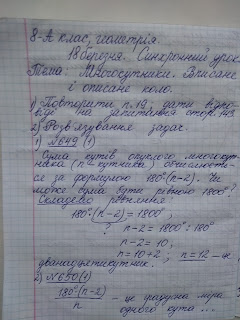 8-А клас, геометрія.
18 березня. Синхронний урок
Тема: Многокутники. Вписане
і описане коло.
1) Повторити п.19, дати відпо-
віді на запитання стор. 143
2) Розв'язування задач.
1) №649 (1)
Сума кутів опуклого многоку-
тника (n-кутника) обчислюєть-
ся за формулою 180°(n-2). Чи
може сума бути рівною 1800°?
Складемо рівняння:
180°·(n-2) = 1800°,
n-2 = 1800°:180°
n-2 = 10,
n = 10+2; n = 12 - це
дванадцятикутник.
2) №650 (1)
180°(n-2)
n
- це градусна міра
одного кута ...